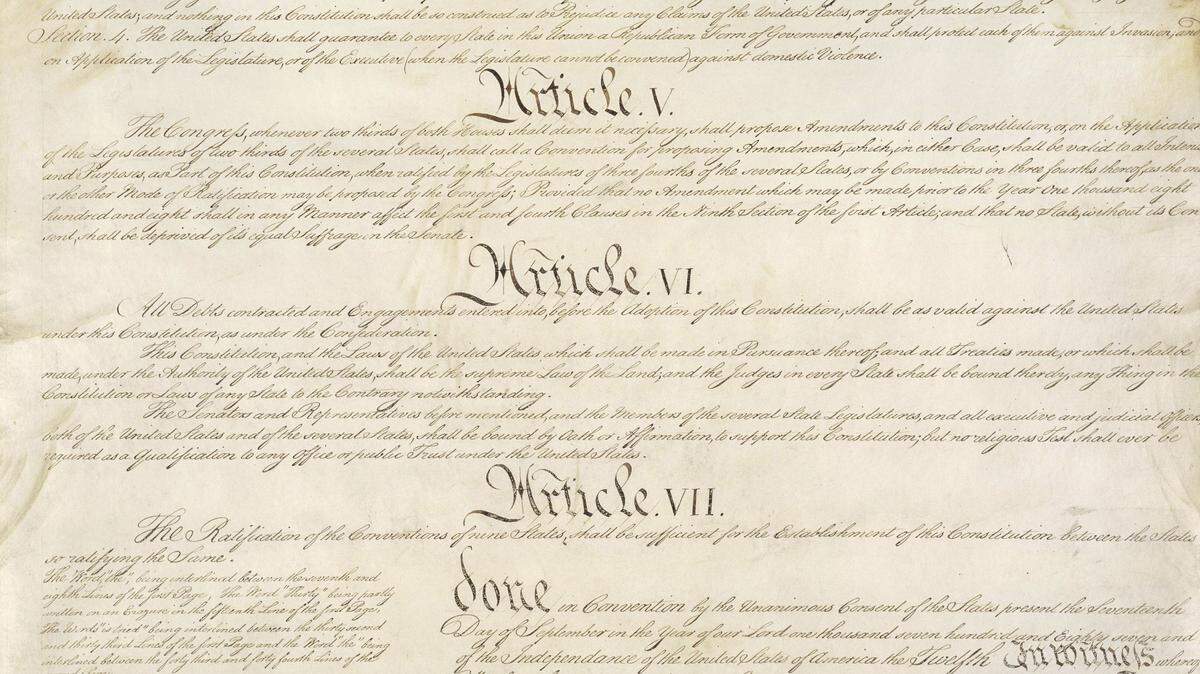 United States; and nothing in this Constitution shall be so construed as to Prejudice any Claims of the United States, or of any particular State.
Section. 4. The United States shall guarantee to every State in this Union a Republican Form of Government, and shall protect each of them against Invasion; and
on Application of the Legislature, or of the Executive (when the Legislature cannot be convened) against domestic Violence.
Article. V.
The Congress, whenever two thirds of both Houses shall deem it necessary, shall propose Amendments to this Constitution, or, on the Application
of the Legislatures of two thirds of the several States, shall call a Convention for proposing Amendments, which, in either Case, shall be valid to all Intents
and Purposes, as Part of this Constitution, when ratified by the Legislatures of three fourths of the several States, or by Conventions in three fourths thereof, as the one
or the other Mode of Ratification may be proposed by the Congress; Provided that no Amendment which may be made prior to the Year One thousand eight
hundred and eight shall in any Manner affect the first and fourth Clauses in the Ninth Section of the first Article; and that no State, without its Con
sent, shall be deprived of its equal Suffrage in the Senate.
Article. VI.
All Debts contracted and Engagements entered into, before the Adoption of this Constitution, shall be as valid against the United States
under this Constitution, as under the Confederation.
This Constitution, and the Laws of the United States which shall be made in Pursuance thereof; and all Treaties made, or which shall be
made, under the Authority of the United States, shall be the supreme Law of the Land; and the Judges in every State shall be bound thereby, any Thing in the
Constitution or Laws of any State to the Contrary notwithstanding.
The Senators and Representatives before mentioned, and the Members of the several State Legislatures, and all executive and judicial Officers,
both of the United States and of the several States, shall be bound by Oath or Affirmation, to support this Constitution; but no religious Test shall ever be
required as a Qualification to any Office or public Trust under the United States.
Article. VII.
The Ratification of the Conventions of nine States, shall be sufficient for the Establishment of this Constitution between the States
so ratifying the Same.
The Word, "the," being interlined between the seventh and
eighth Lines of the first Page, The Word "Thirty" being partly
written on an Erazure in the fifteenth Line of the first Page,
The Words "is tried" being interlined between the thirty second
and thirty third Lines of the first Page and the Word "the" being
interlined between the forty third and forty fourth Lines of the
done in Convention by the Unanimous Consent of the States present the Seventeenth
Day of September in the Year of our Lord one thousand seven hundred and Eighty seven and
of the Independance of the United States of America the Twelfth In witness whereof